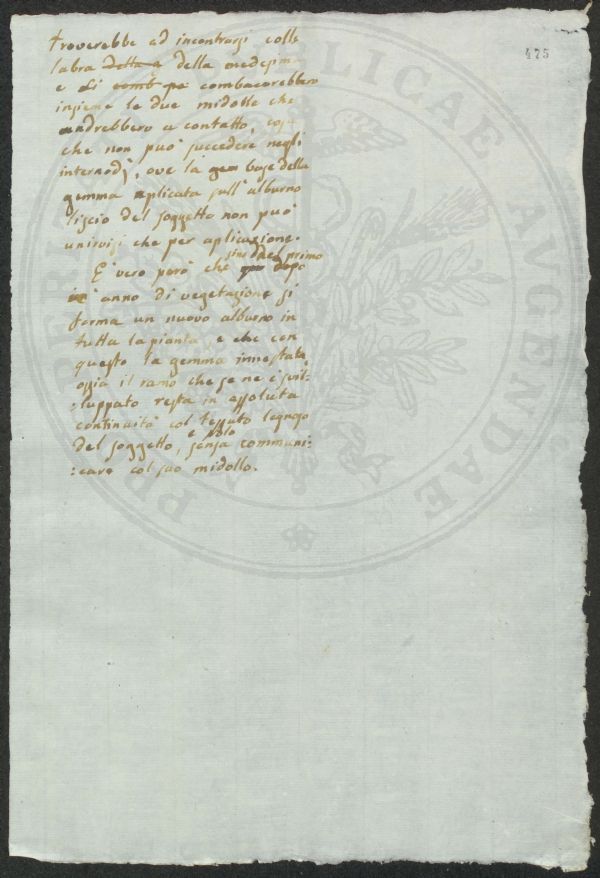 475
troverebbe ad incontrarsi colle
labra della della medesima
e di comb pa combacerebbero
insieme le due midolle che
andrebbero a contatto, cosa
che non può succedere negli
internodj, ove la gem base della
gemma aplicata sull'alburno
liscio del soggetto non può
unirvisi che per aplicazione.
E' vero però che sino dal primo dopo
anno di vegetazione si
forma un nuovo alburno in
tutta la pianta, e che con
questo la gemma innestata
ossia il ramo che se ne è svil:
:luppato resta in assoluta
continuità col tessuto legnoso
del soggetto, e solo senza communi:
:care col suo midollo.
PUBLICAE
AUGENDAE